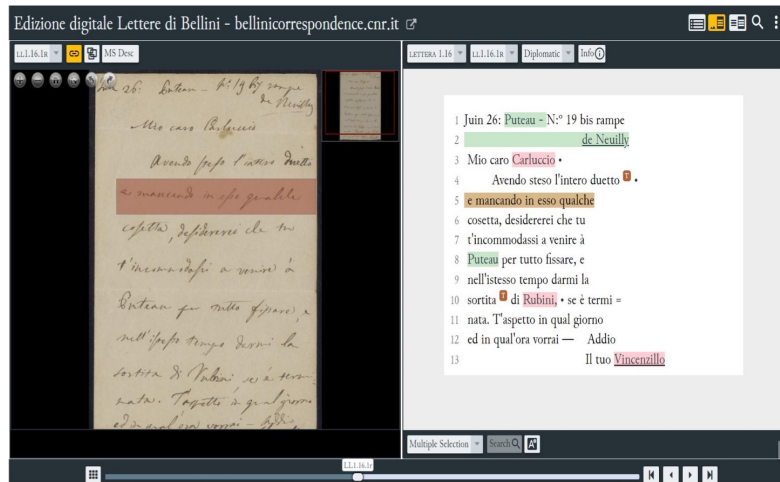 Edizione digitale Lettere di Bellini - bellinicorrespondence.cnr.it
LL1.16.1R
MS Desc
Juin 26: Puteau - N:º 19 bis rampe
de Neuilly
Mio caro Carluccio
Avendo steso l'intero duetto
e mancando in esso qualche
cosetta, desidererei che tu
t'incommodassi a venire à
Puteau per tutto fissare, e
nell'istesso tempo darmi la
sortita di Rubini, se è termi=
nata. T'aspetto in qual giorno
ed in qual'ora vorrai — Addio
LETTERA 1.16 LL1.16.1R Diplomatic Info
1 Juin 26: Puteau - N:º 19 bis rampe
2 de Neuilly
3 Mio caro Carluccio •
4 Avendo steso l'intero duetto T •
5 e mancando in esso qualche
6 cosetta, desidererei che tu
7 t'incommodassi a venire à
8 Puteau per tutto fissare, e
9 nell'istesso tempo darmi la
10 sortita T di Rubini, • se è termi =
11 nata. T'aspetto in qual giorno
12 ed in qual'ora vorrai — Addio
13 Il tuo Vincenzillo
Multiple Selection Search
LL1.16.1r